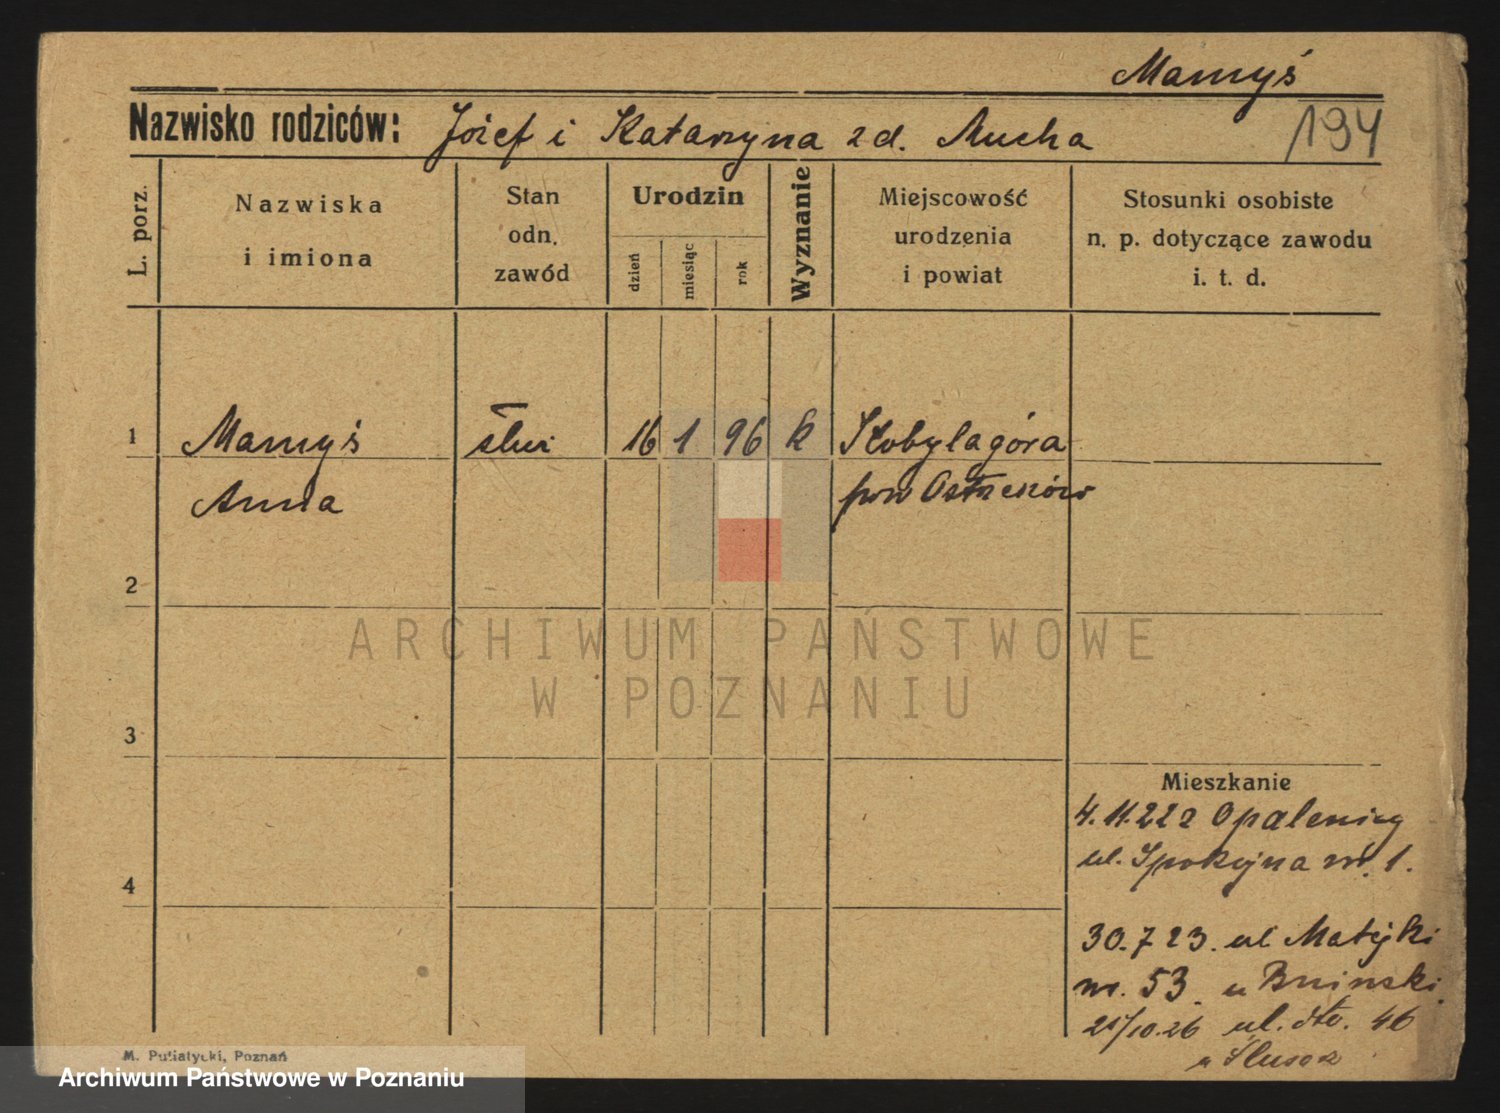 Mamyś
Nazwisko rodziców: Józef i Katarzyna z d. Mucha
194
L. porz.
Nazwiska
i imiona
Stan
odn.
zawód
Urodzin
dzień
miesiąc
rok
Wyznanie
Miejscowość
urodzenia
i powiat
Stosunki osobiste
n. p. dotyczące zawodu
i. t. d.
1
Mamyś
służ
16 1 96 k
Kobylagóra
Anna
pow
2
3
4
ARCHIWUM PAŃSTWOWE
W POZNANIU
Mieszkanie
4.11.22 z Opalenicy
ul. Spokojna nr. 1.
30.7 23. ul Matejki
nr. 53. u Bninski.
21/10.26 ul. dto. 46
u
M. Putiatycki, Poznań
Archiwum Państwowe w Poznaniu